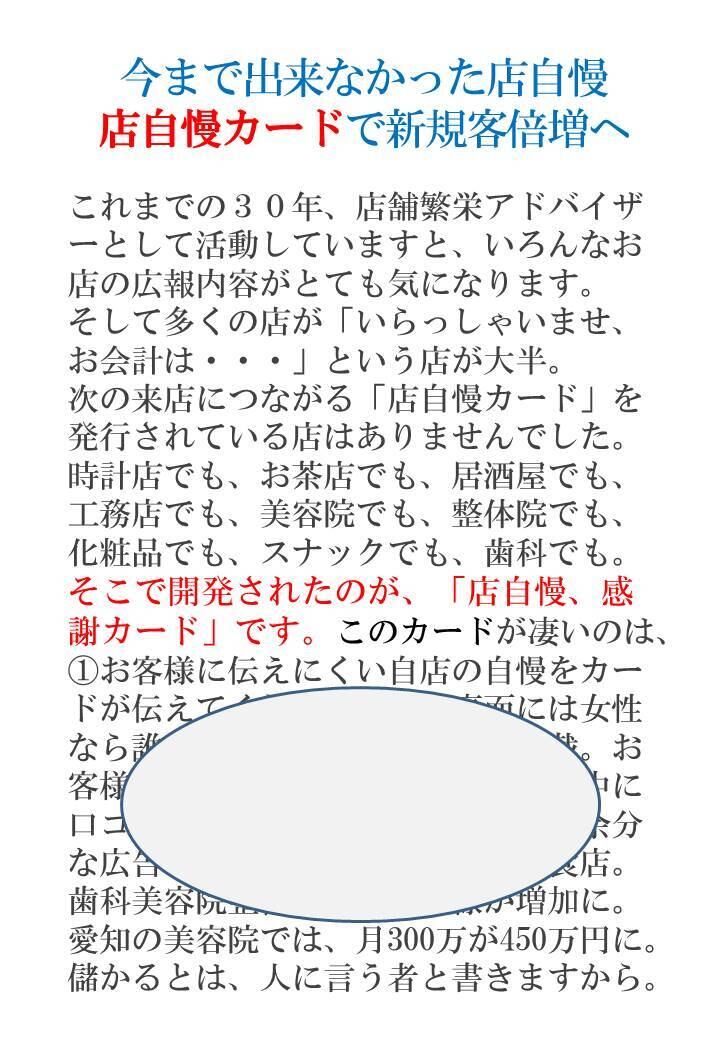 今まで出来なかった店自慢
店自慢カードで新規客倍増へ
これまでの３０年、店舗繁栄アドバイザ
ーとして活動していますと、いろんなお
店の広報内容がとても気になります。
そして多くの店が「いらっしゃいませ、
お会計は・・・」という店が大半。
次の来店につながる「店自慢カード」を
発行されている店はありませんでした。
時計店でも、お茶店でも、居酒屋でも、
工務店でも、美容院でも、整体院でも、
化粧品でも、スナックでも、歯科でも。
そこで開発されたのが、「店自慢、感
謝カード」です。このカードが凄いのは、
①お客様に伝えにくい自店の自慢をカー
ドが伝えて には女性
なら誰 。お
客様 中に
口コ 余分
な広告 食店。
歯科美容院 が増加に。
愛知の美容院では、月300万が450万円に。
儲かるとは、人に言う者と書きますから。